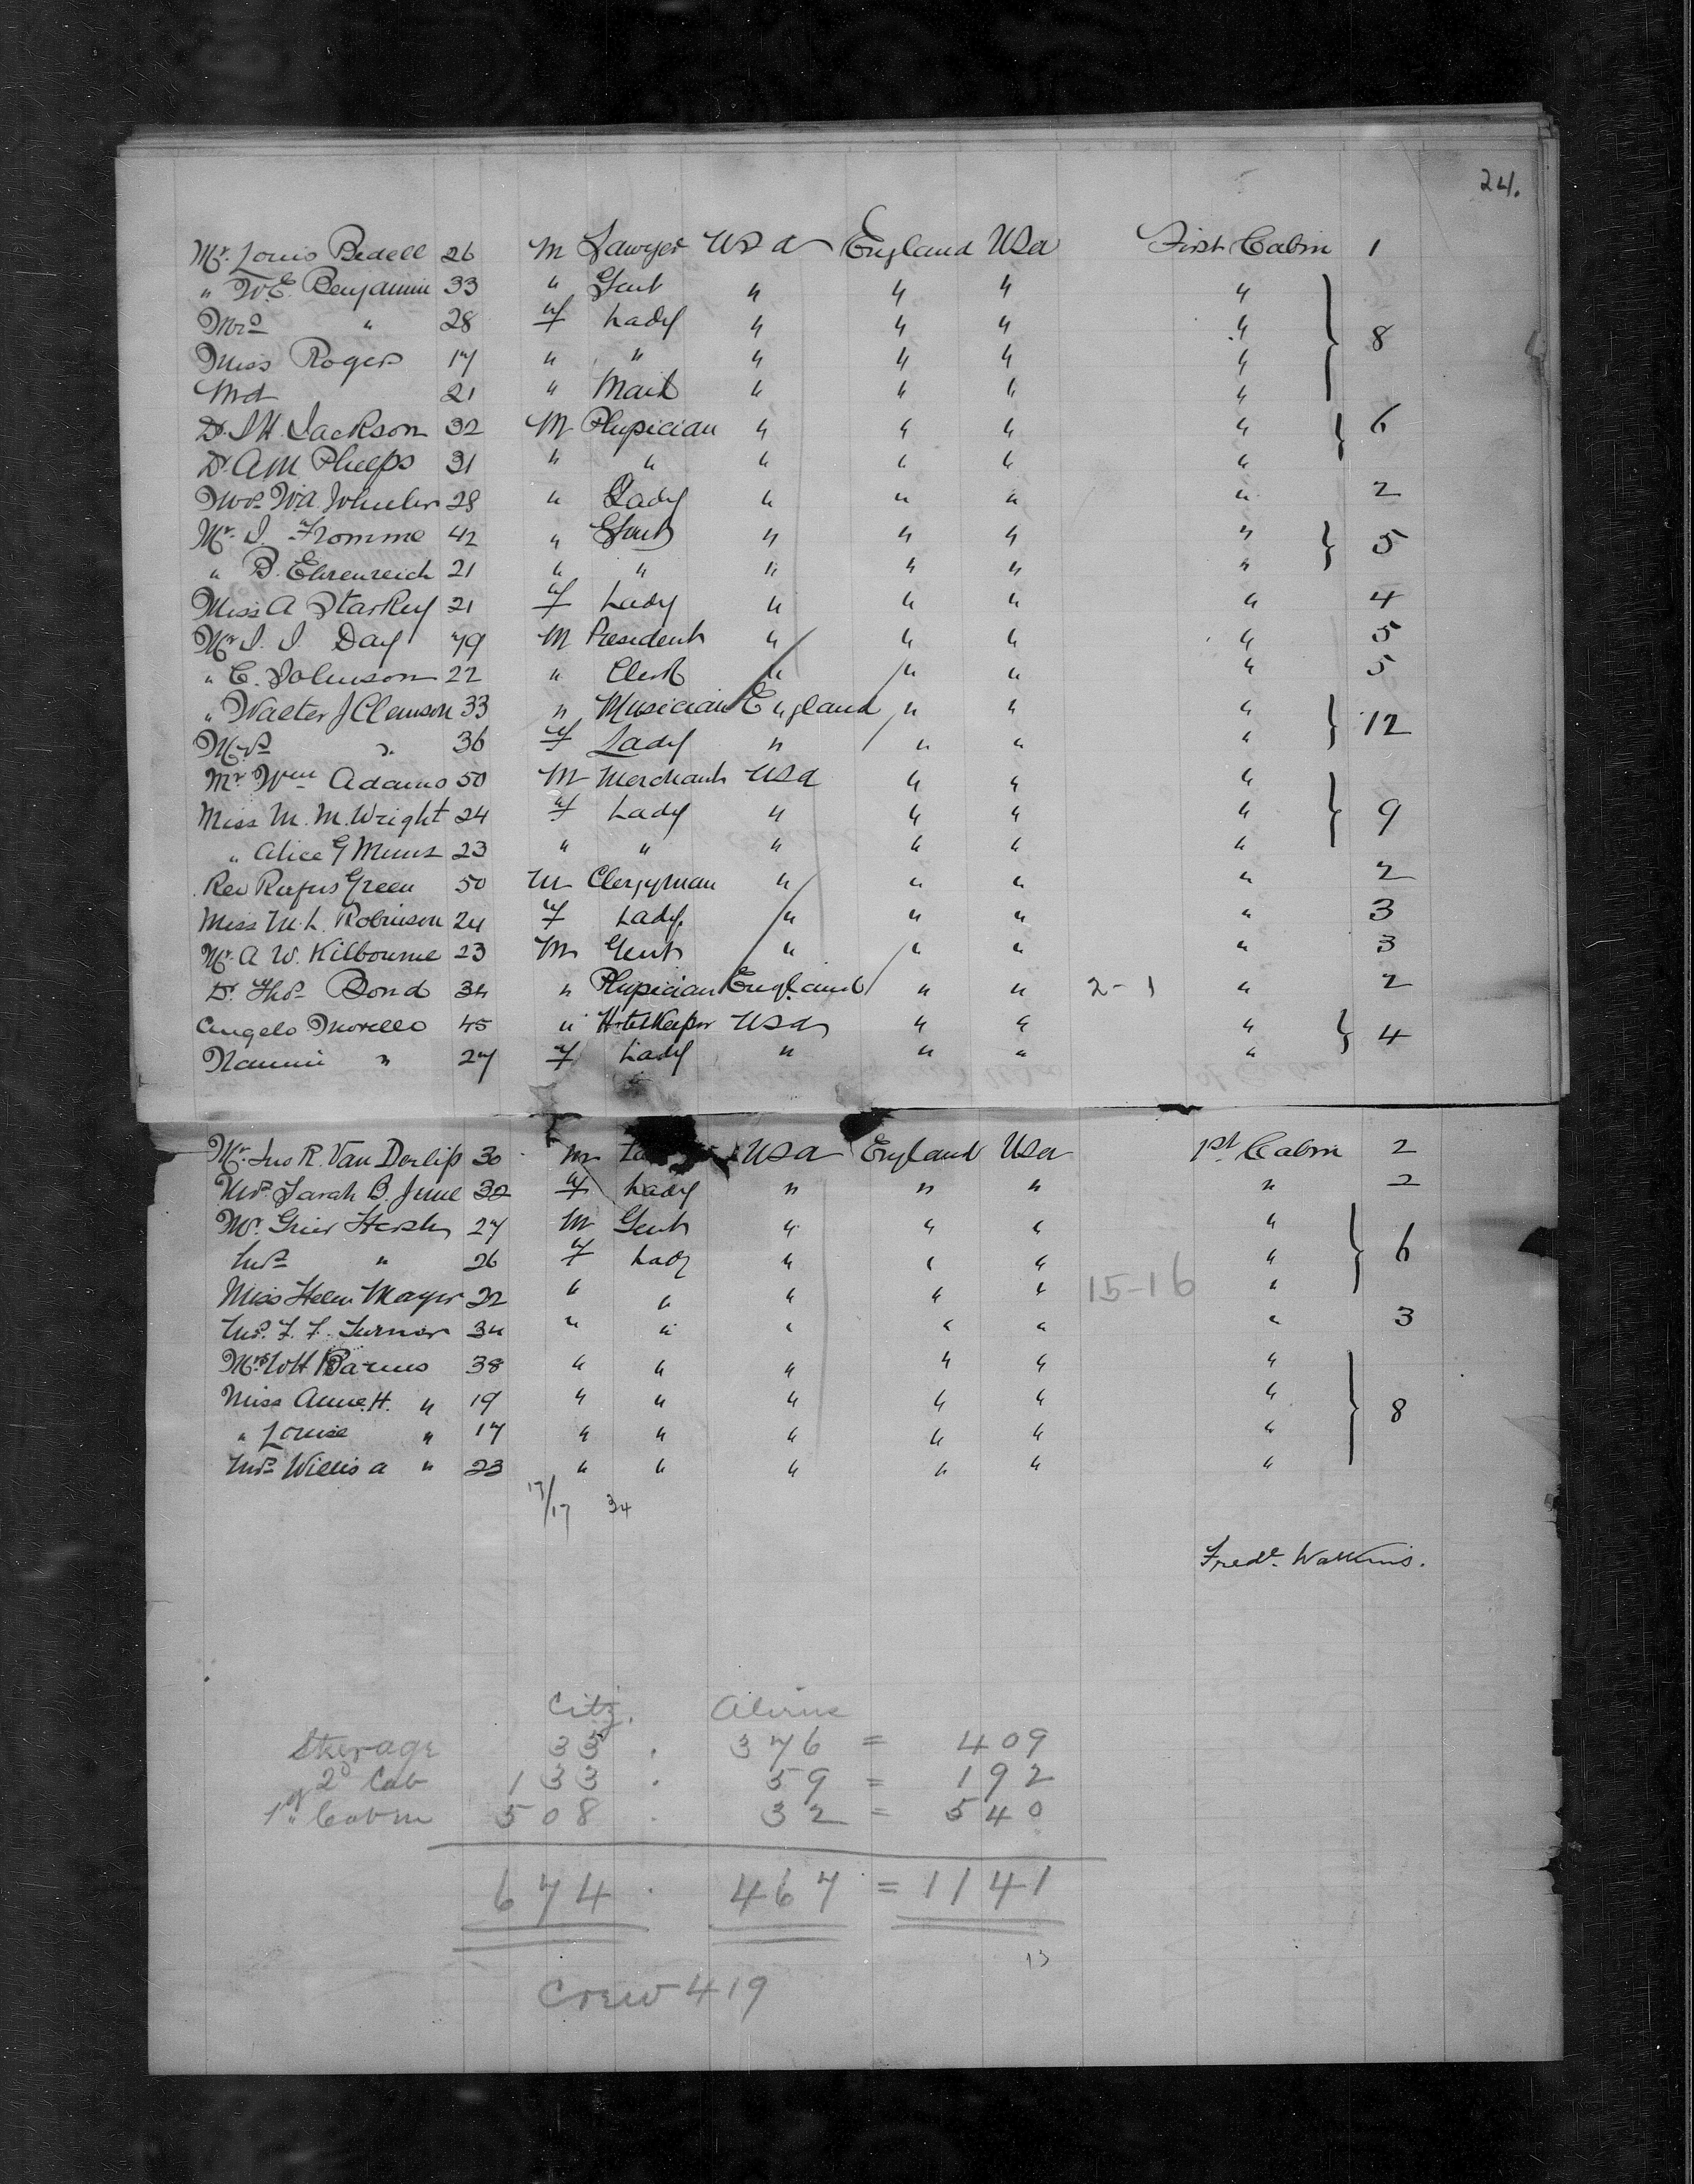 24.
Mr. Louis Bedell 26 M Lawyer USA England USA First Cabin 1
" W.E. Benjamin 33 " Gent " " " "
Mrs " 28 f Lady " " " " 8
Miss Rogers 17 " " " " " "
Md 21 " Maid " " " "
Dr. J.H. Jackson 32 M Physician " " " " 6
Dr. A M Phelps 31 " " " " " "
Mrs. W.A. Wheeler 28 " Lady " " " " 2
Mr. I. Fromme 42 " Gent " " " " 5
" B. Ehrenreich 21 " " " " " "
Miss A Starkey 21 f Lady " " " " 4
Mr J. J. Day 49 M President " " " " 5
" C. Johnson 22 " Clerk " " " " 5
" Walter J Clemson 33 " Musician England " " "
Mrs " 36 f Lady " " " " 12
Mr Wm Adams 50 M Merchant USA " " "
Miss M. M. Wright 24 f Lady " " " " 9
" Alice G 23 " " " " " "
Rev Rufus Green 50 M Clergyman " " " " 2
Miss M. L. Robinson 24 f Lady " " " " 3
Mr. A W. Kilbourne 23 M Gent " " " " 3
Dr. Thos. Bond 34 " Physician England " " 2-1 " 2
Angelo Morello 45 " HotelKeeper USA " " " 4
Nannie " 27 f Lady " " " "
Mr. Jno R. Van Derlip 30 M USA England USA 1st Cabin 2
Mrs Sarah B. June 32 f Lady " " " " 2
Mr. Grier Hersh 27 M Gent " " " "
Mrs " 26 f Lady " " " " 6
Miss Helen Mayer 22 " " " " " 15-16 "
Mrs. F. F. Turner 34 " " " " " " 3
Mrs WH Barnes 38 " " " " " "
Miss Anne H. " 19 " " " " " " 8
" Louise " 17 " " " " " "
Mrs Willis A " 23 " " " " " "
17/17 34
Fredk. Watkins.
Citz. Aliens
Sterage 33 . 376 = 409
2d Cab 133 . 59 = 192
1st Cabin 508 . 32 = 540
674 . 467 = 1141
13
Crew 419